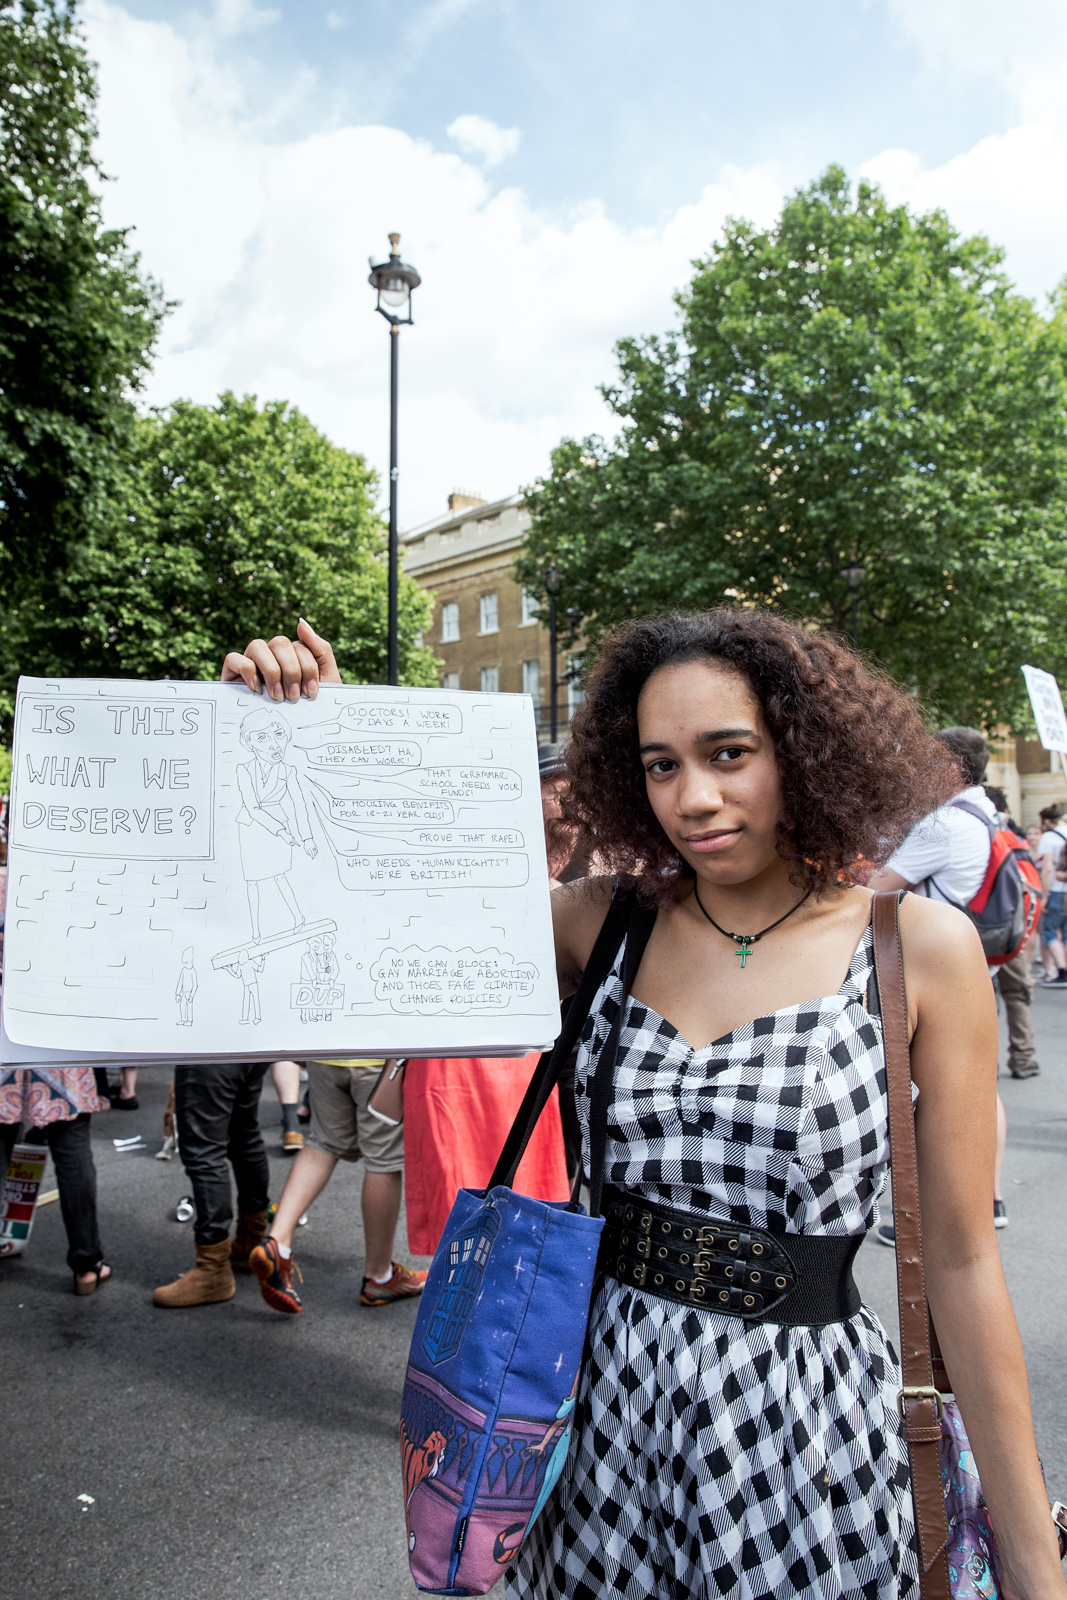 IS THIS
WHAT WE
DESERVE?
DOCTORS! WORK
7 DAYS A WEEK!
DISABLED? HA,
THEY CAN WORK!
THAT GRAMMAR
SCHOOL NEEDS YOUR
FUNDS!
NO HOUSING BENEFITS
FOR 18-21 YEAR OLDS!
PROVE THAT RAPE!
WHO NEEDS "HUMAN RIGHTS"?
WE'RE BRITISH!
NO WE CAN BLOCK:
GAY MARRIAGE, ABORTION
AND THOES FAKE CLIMATE
CHANGE POLICIES
DUP